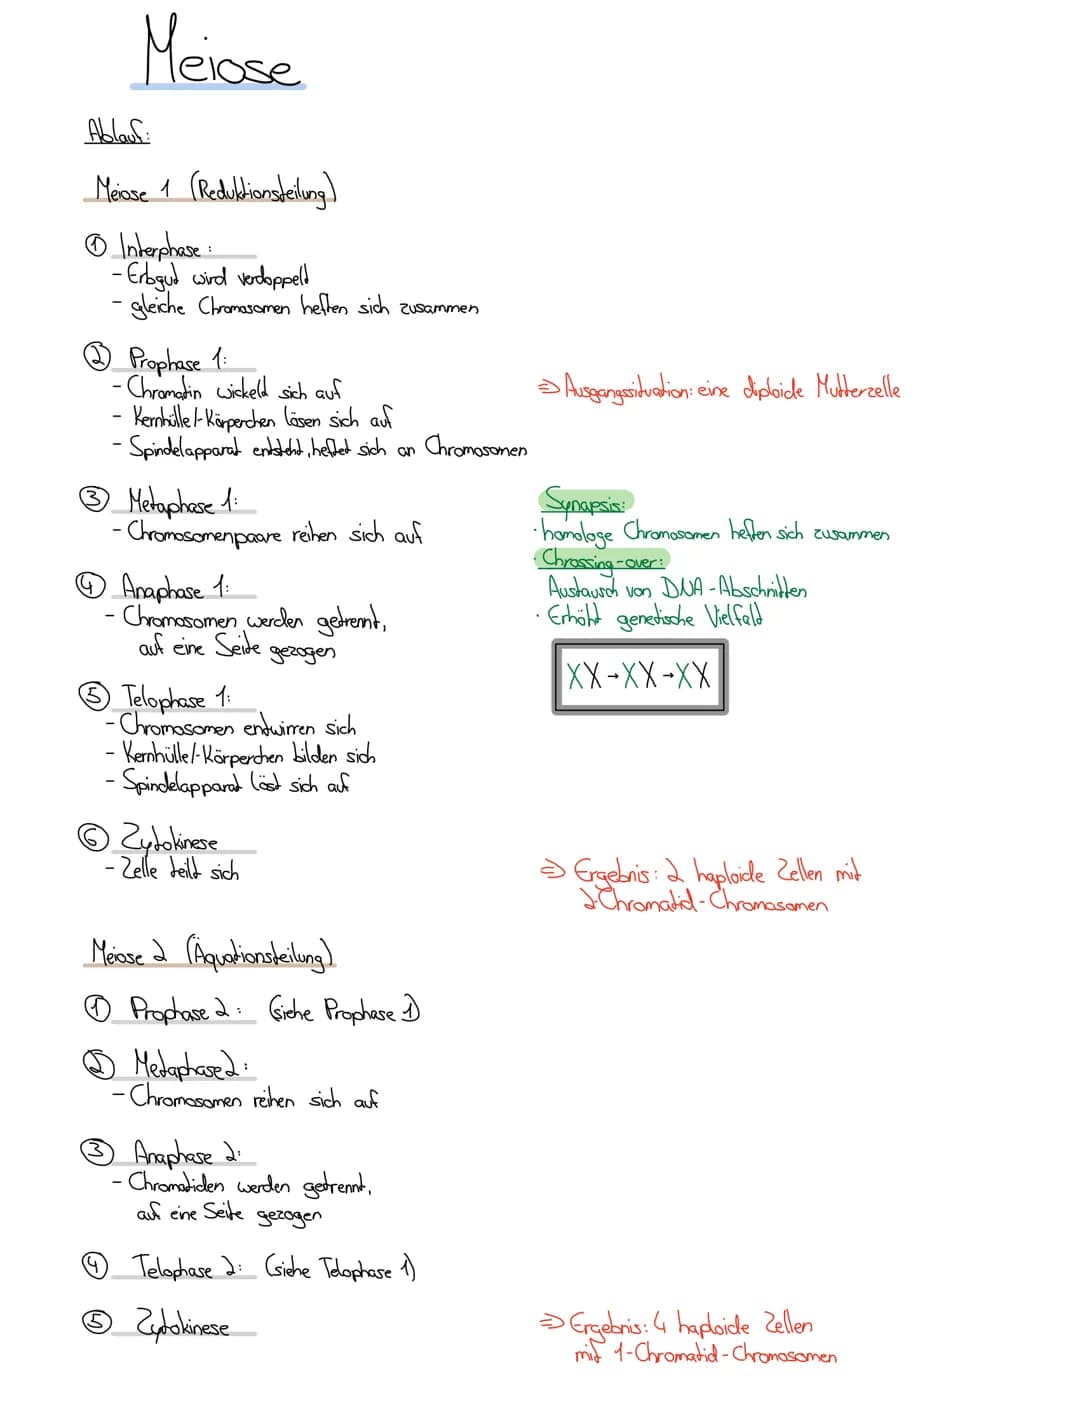 Meiose
Ablauf:
Meiose 1 (Reduktionsteilung)
① Interphase:
- Erbgut wird verdoppelt
- gleiche Chromosomen heften sich zusammen
② Prophase 1:
- Chromatin wickelt sich auf
- Kernhülle/-Körperchen lösen sich auf
- Spindelapparat entsteht, heftet sich an Chromosomen
⇒ Ausgangssituation: eine diploide Mutterzelle
③ Metaphase 1:
- Chromosomenpaare reihen sich auf
Synapsis:
· homologe Chromosomen heften sich zusammen
· Chrossing-over:
Austausch von DNA-Abschnitten
· Erhöht genetische Vielfalt
XX→XX→XX
④ Anaphase 1:
- Chromosomen werden getrennt,
auf eine Seite gezogen
⑤ Telophase 1:
- Chromosomen entwirren sich
- Kernhülle/-Körperchen bilden sich
- Spindelapparat löst sich auf
⑥ Zytokinese
- Zelle teilt sich
⇒ Ergebnis: 2 haploide Zellen mit
2-Chromatid-Chromosomen
Meiose 2 (Äquationsteilung)
① Prophase 2: (siehe Prophase 1)
② Metaphase 2:
- Chromosomen reihen sich auf
③ Anaphase 2:
- Chromatiden werden getrennt,
auf eine Seite gezogen
④ Telophase 2: (siehe Telophase 1)
⑤ Zytokinese
⇒ Ergebnis: 4 haploide Zellen
mit 1-Chromatid-Chromosomen